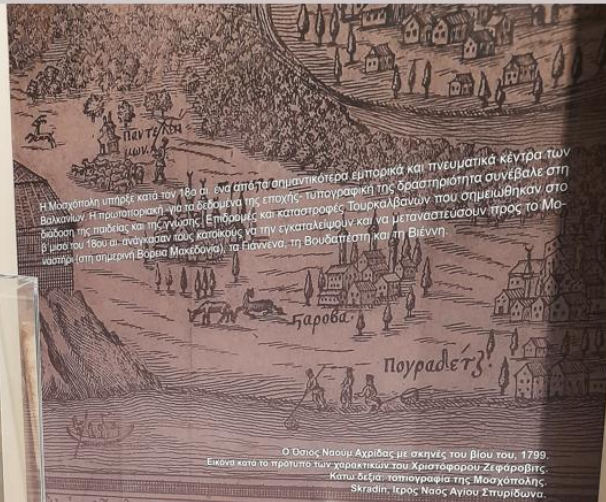 Παντελεή
μων.
Η Μοσχόπολη υπήρξε κατά τον 18ο αι. ένα από τα σημαντικότερα εμπορικά και πνευματικά κέντρα των
Βαλκανίων. Η πρωτοποριακή -για τα δεδομένα της εποχής- τυπογραφική της δραστηριότητα συνέβαλε στη
διάδοση της παιδείας και της γνώσης. Επιδρομές και καταστροφές Τουρκαλβανών που σημειώθηκαν στο
β΄ μισό του 18ου αι. ανάγκασαν τους κατοίκους να την εγκαταλείψουν και να μεταναστεύσουν προς το Μο-
ναστήρι (στη σημερινή Βόρεια Μακεδονία), τα Γιάννενα, τη Βουδαπέστη και τη Βιέννη.
ςαροβα.
Πουραδέτζ
Ο Όσιος Ναούμ Αχρίδας με σκηνές του βίου του, 1799.
Εικόνα κατά το πρότυπο των χαρακτικών του Χριστόφορου Ζεφάροβιτς.
Κάτω δεξιά: τοπιογραφία της Μοσχόπολης.
Skradin, Ιερός Ναός Αγίου Σπυρίδωνα.